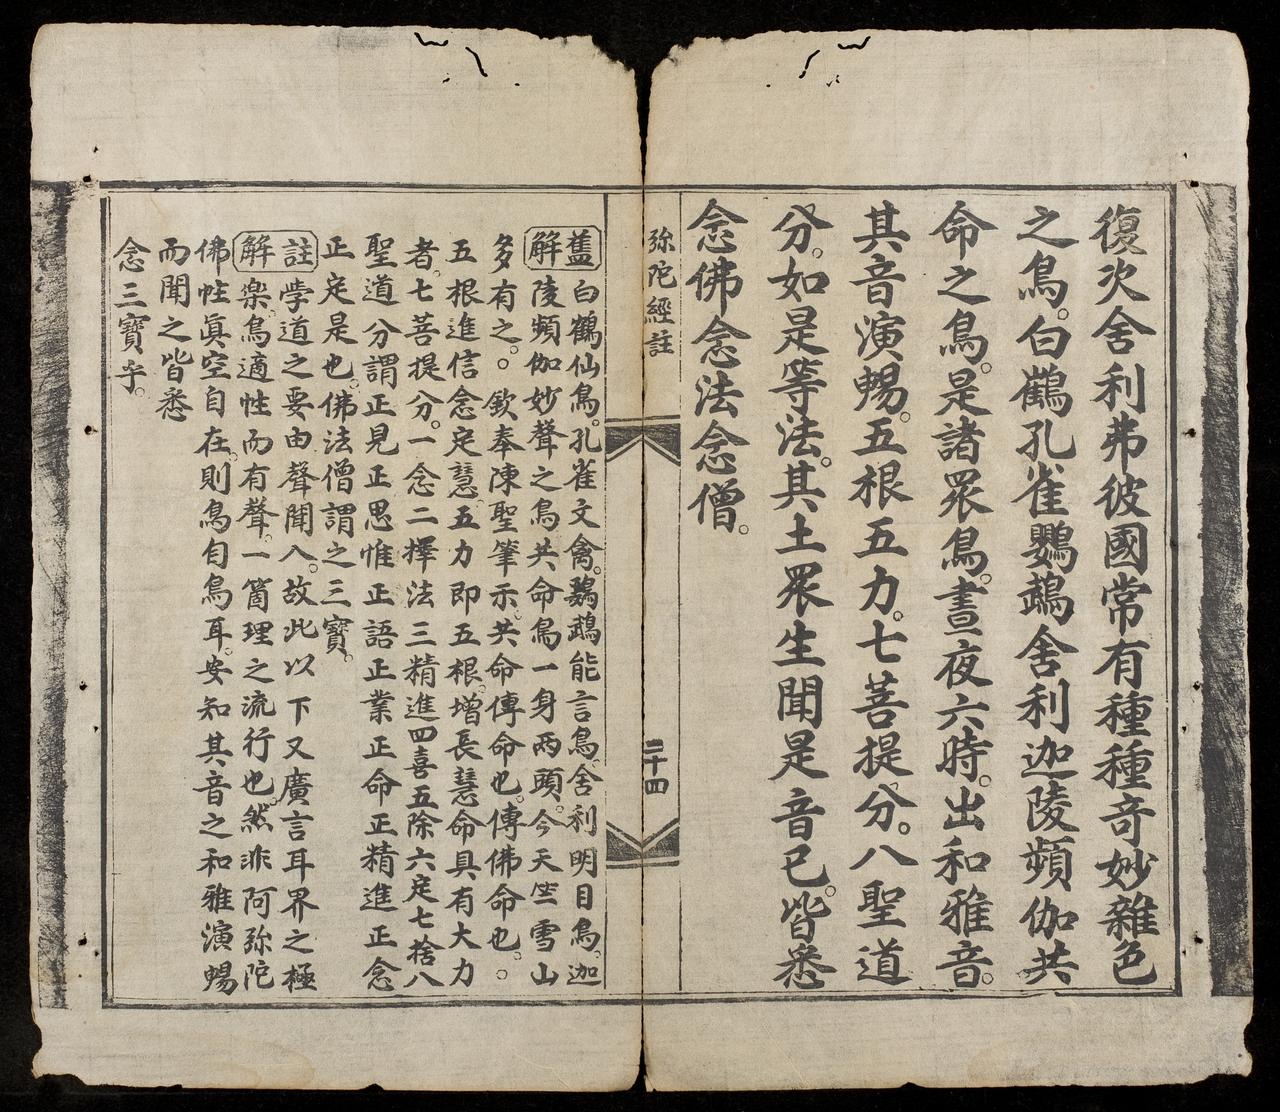 復次舍利弗彼國常有種種奇妙雜色
之鳥。白鶴孔雀鸚鵡舍利迦陵頻伽共
命之鳥。是諸衆鳥。晝夜六時。出和雅音。
其音演暢。五根五力。七菩提分。八聖道
分。如是等法。其土衆生聞是音已。皆悉
念佛念法念僧。
弥陀經註
二十四
舊解
白鶴仙鳥。孔雀文禽。鸚鵡能言鳥。舍利明目鳥。迦
陵頻伽妙聲之鳥共命鳥一身兩頭。今天竺雪山
多有之。。欽奉陳聖筆示。共命傳命也。傳佛命也。。
五根進信念定慧。五力即五根。增長慧命具有大力
者。七菩提分。一念二擇法三精進四喜五除六定七捨八
聖道分謂正見正思惟正語正業正命正精進正念
正定是也。佛法僧謂之三寶。
註解
學道之要由聲聞入。故此以下又廣言耳界之極
樂。鳥適性而有聲。一箇理之流行也。然非阿弥陀
佛性眞空自在。則鳥自鳥耳。安知其音之和雅演暢
而聞之皆悉
念三寶乎。